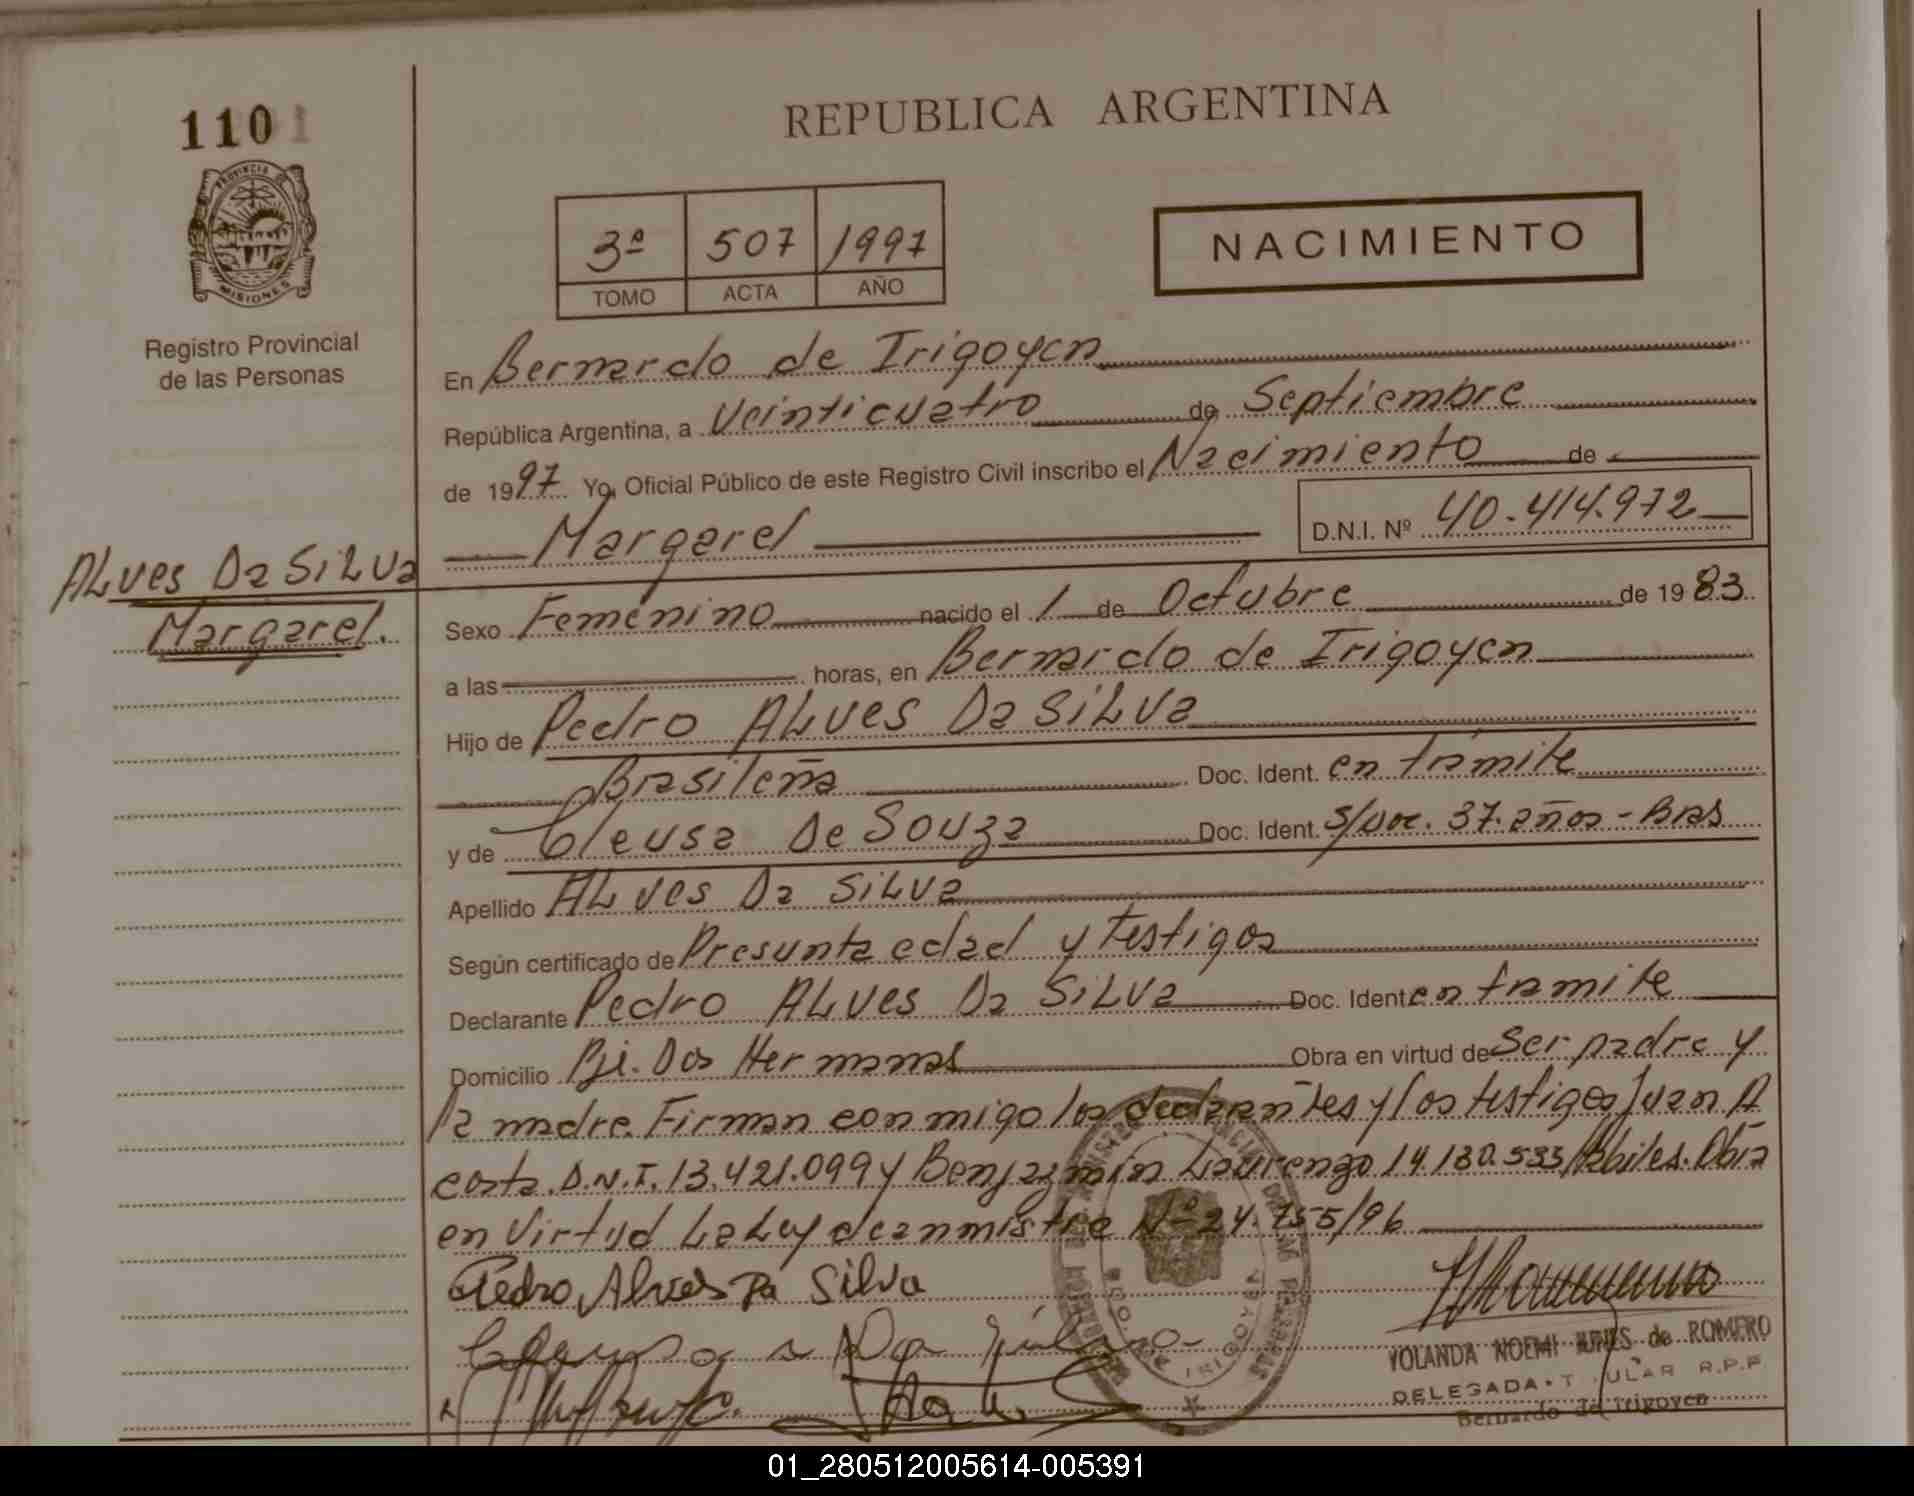 1101
PROVINCIA DE
MISIONES
Registro Provincial
de las Personas
ALves Da SiLva
Margarel.
REPUBLICA ARGENTINA
3ª 507 1997
TOMO ACTA AÑO
NACIMIENTO
En Bernardo de Irigoyen
República Argentina, a Veinticuatro de Septiembre
de 1997 Yo, Oficial Público de este Registro Civil inscribo el Nacimiento de
Margarel D.N.I. Nº 40.414.972
Sexo Femenino nacido el 1 de Octubre de 1983
a las horas, en Bernardo de Irigoyen
Hijo de Pedro ALves Da SiLva
Brasileña Doc. Ident. en trámite
y de Cleusa De Souza Doc. Ident. S/Doc. 37 años - Bras
Apellido ALves Da SiLva
Según certificado de Presunta edad y Testigos
Declarante Pedro ALves Da SiLva Doc. Ident en tramite
Domicilio Pje. Dos Hermanas Obra en virtud de Ser padre y
la madre. Firman conmigo los declarantes y los testigos Juan A
costa. D.N.I. 13.421.099 y Benjazmin Laurenzo 14.130.533/Hábiles. Obra
en Virtud La Ley de anmistia Nº 24.755/96
Pedro Alves Da Silva
YOLANDA NOEMI de ROMERO
DELEGADA TITULAR R.P.P.
Bernardo de Irigoyen
01_280512005614-005391